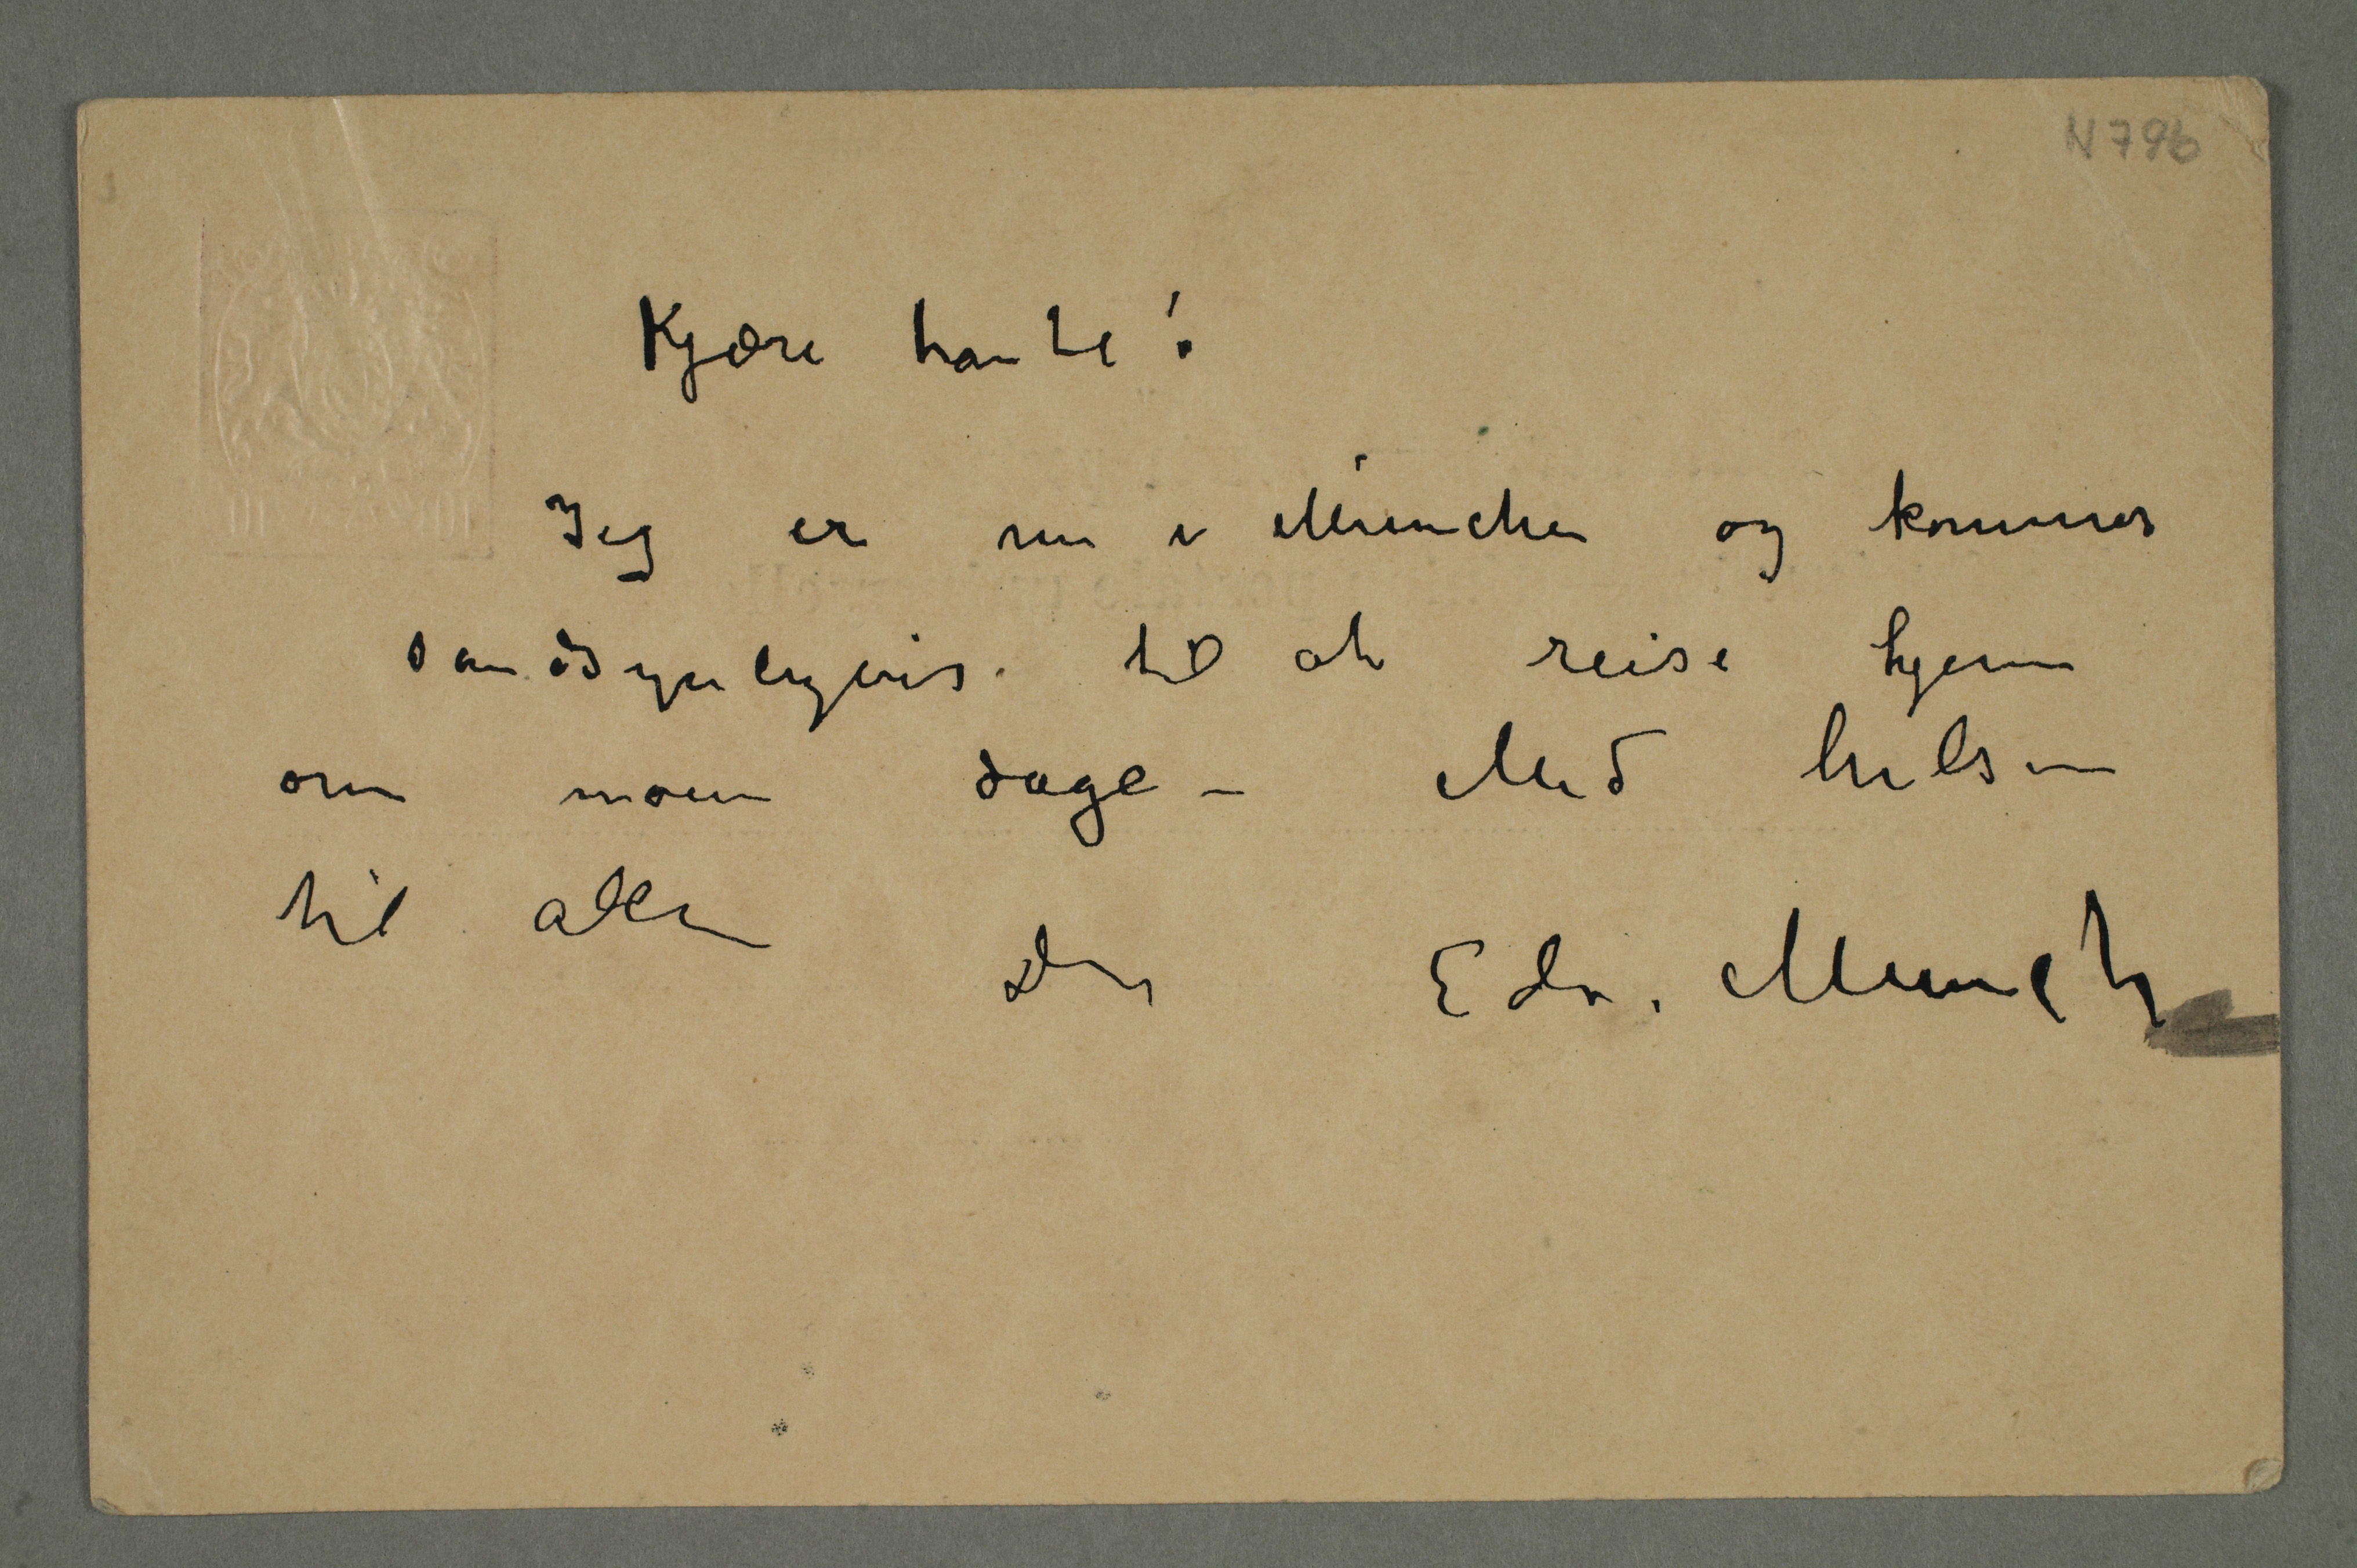 N 796
Kjære tante!
Jeg er nu i München og kommer
sandsynligvis til at reise hjem
om noen dage – Med hilsen
til alle
Din Edv. Munch